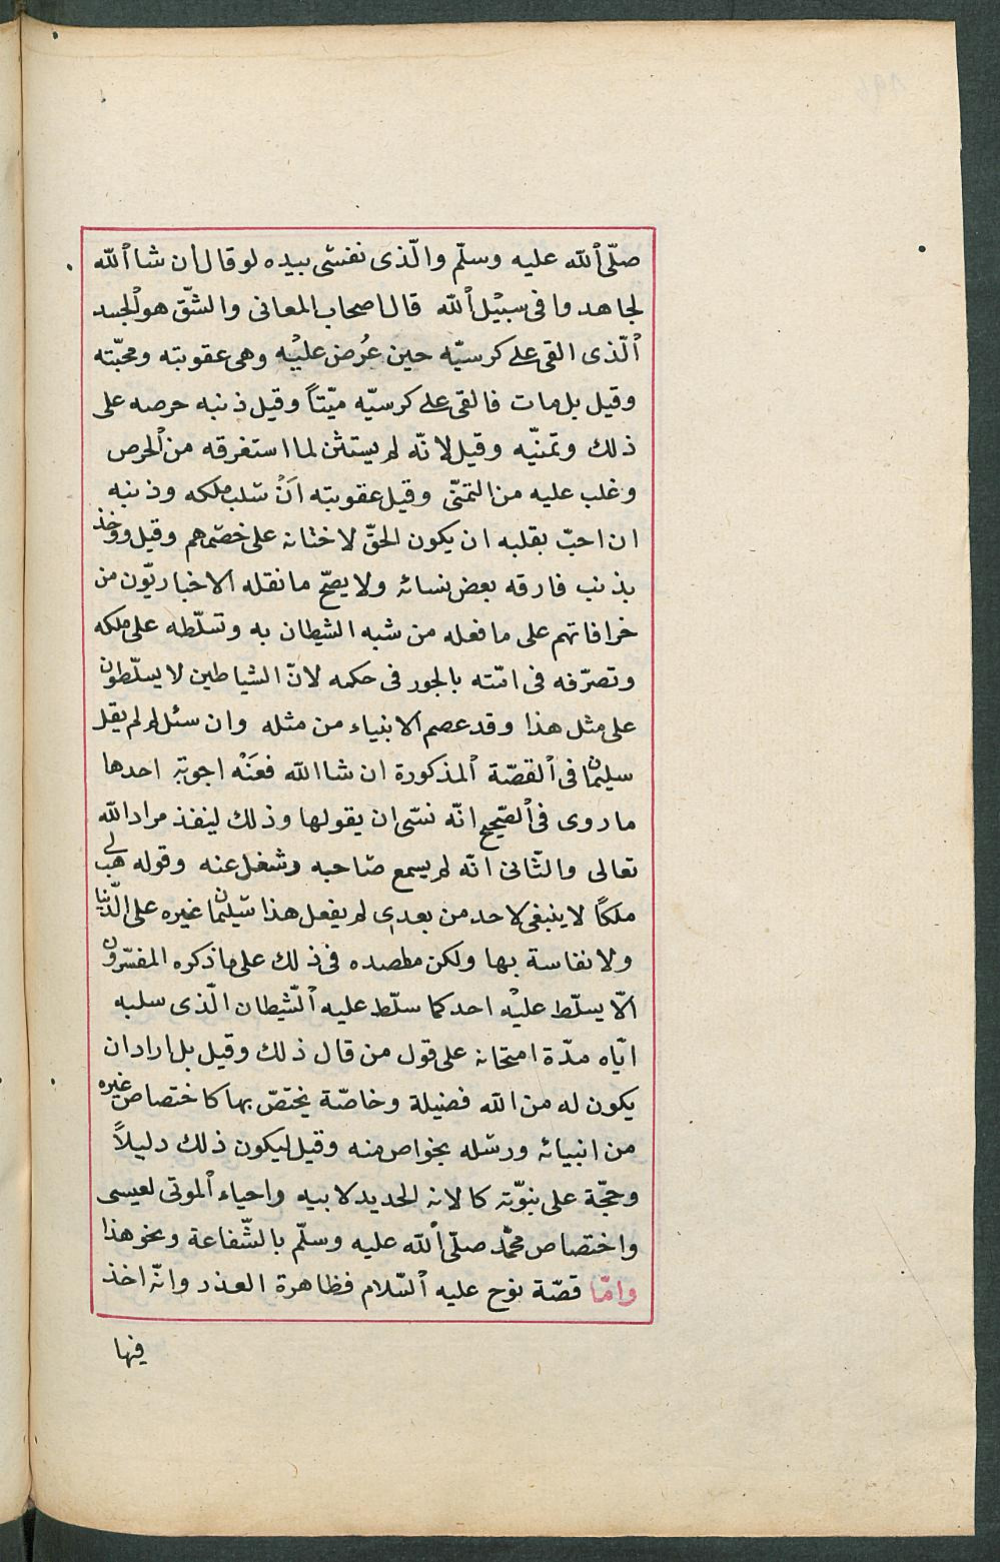 صلّى ٱلله عليه وسلّم والّذى نفسى بيده لو قال ان شا ٱلله
لجاهدوا فى سبيل ٱلله قال اصحاب المعانى والشّق هو ٱلجسد
ٱلّذى القى على كرسيّه حين عُرض عليه وهى عقوبته ومحبّته
وقيل بل مات فالقى على كرسيّه ميّتاً وقيل ذنبه حرصه على
ذلك وتمنّيه وقيل لانّه لم يستثن لما استغرقه من ٱلحرص
وغلب عليه من التمنّى وقيل عقوبته اَنْ سُلب ملكه وذنبه
ان احبّ بقلبه ان يكون الحقّ لاختانه على خصمهم وقيل ووخذ
بذنب قارفه بعض نسائه ولا يصحّ ما نقله الاخباريّون من
خرافاتهم على ما فعله من شبه الشيطان به وتسلّطه على ملكه
وتصرّفه فى امّته بالجور فى حكمه لانّ الشياطين لا يسلّطون
على مثل هذا وقد عصم الانبياء من مثله وان سئل لم لم يقل
سليمان فى ٱلقصّة ٱلمذكورة ان شا الله فعَنْه اجوبة احدها
ما روى فى ٱلصّحيح انّه نسى ان يقولها وذلك لينفذ مراد الله
تعالى والثّانى انّه لم يسمع صاحبه وشغل عنه وقوله هب لى
ملكاً لا ينبغى لاحد من بعدى لم يفعل هذا سليمان غيره على الدّنيا
ولا نفاسة بها ولكن مقصده فى ذلك على ما ذكره المفسّرون
الّا يسلّط عليه احد كما سلّط عليه ٱلشّيطان الّذى سلبه
ايّاه مدّة امتحانه على قول من قال ذلك وقيل بل اراد ان
يكون له من الله فضيلة وخاصّة يختصّ بها كاختصاص غيره
من انبيائه ورسله بخواص منه وقيل ليكون ذلك دليلاً
وحجّة على نبوّته كالانه الحديد لابيه واحياء ٱلموتى لعيسى
واختصاص محمّد صلّى ٱلله عليه وسلّم بالشّفاعة ونحو هذا
وامّا قصّة نوح عليه ٱلسّلام فظاهرة العذر وانّه اخذ
فيها